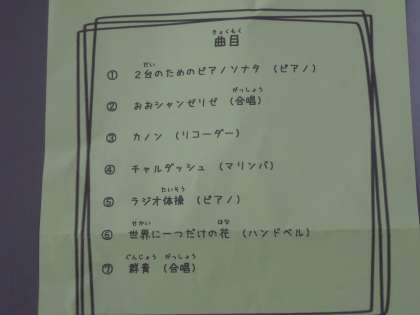 きょくもく
曲目
だい
① 2台のためのピアノソナタ (ピアノ)
がっしょう
② おおシャンゼリゼ (合唱)
③ カノン (リコーダー)
④ チャルダッシュ (マリンバ)
たいそう
⑤ ラジオ体操 (ピアノ)
せかい はな
⑥ 世界に一つだけの花 (ハンドベル)
ぐんじょう がっしょう
⑦ 群青 (合唱)